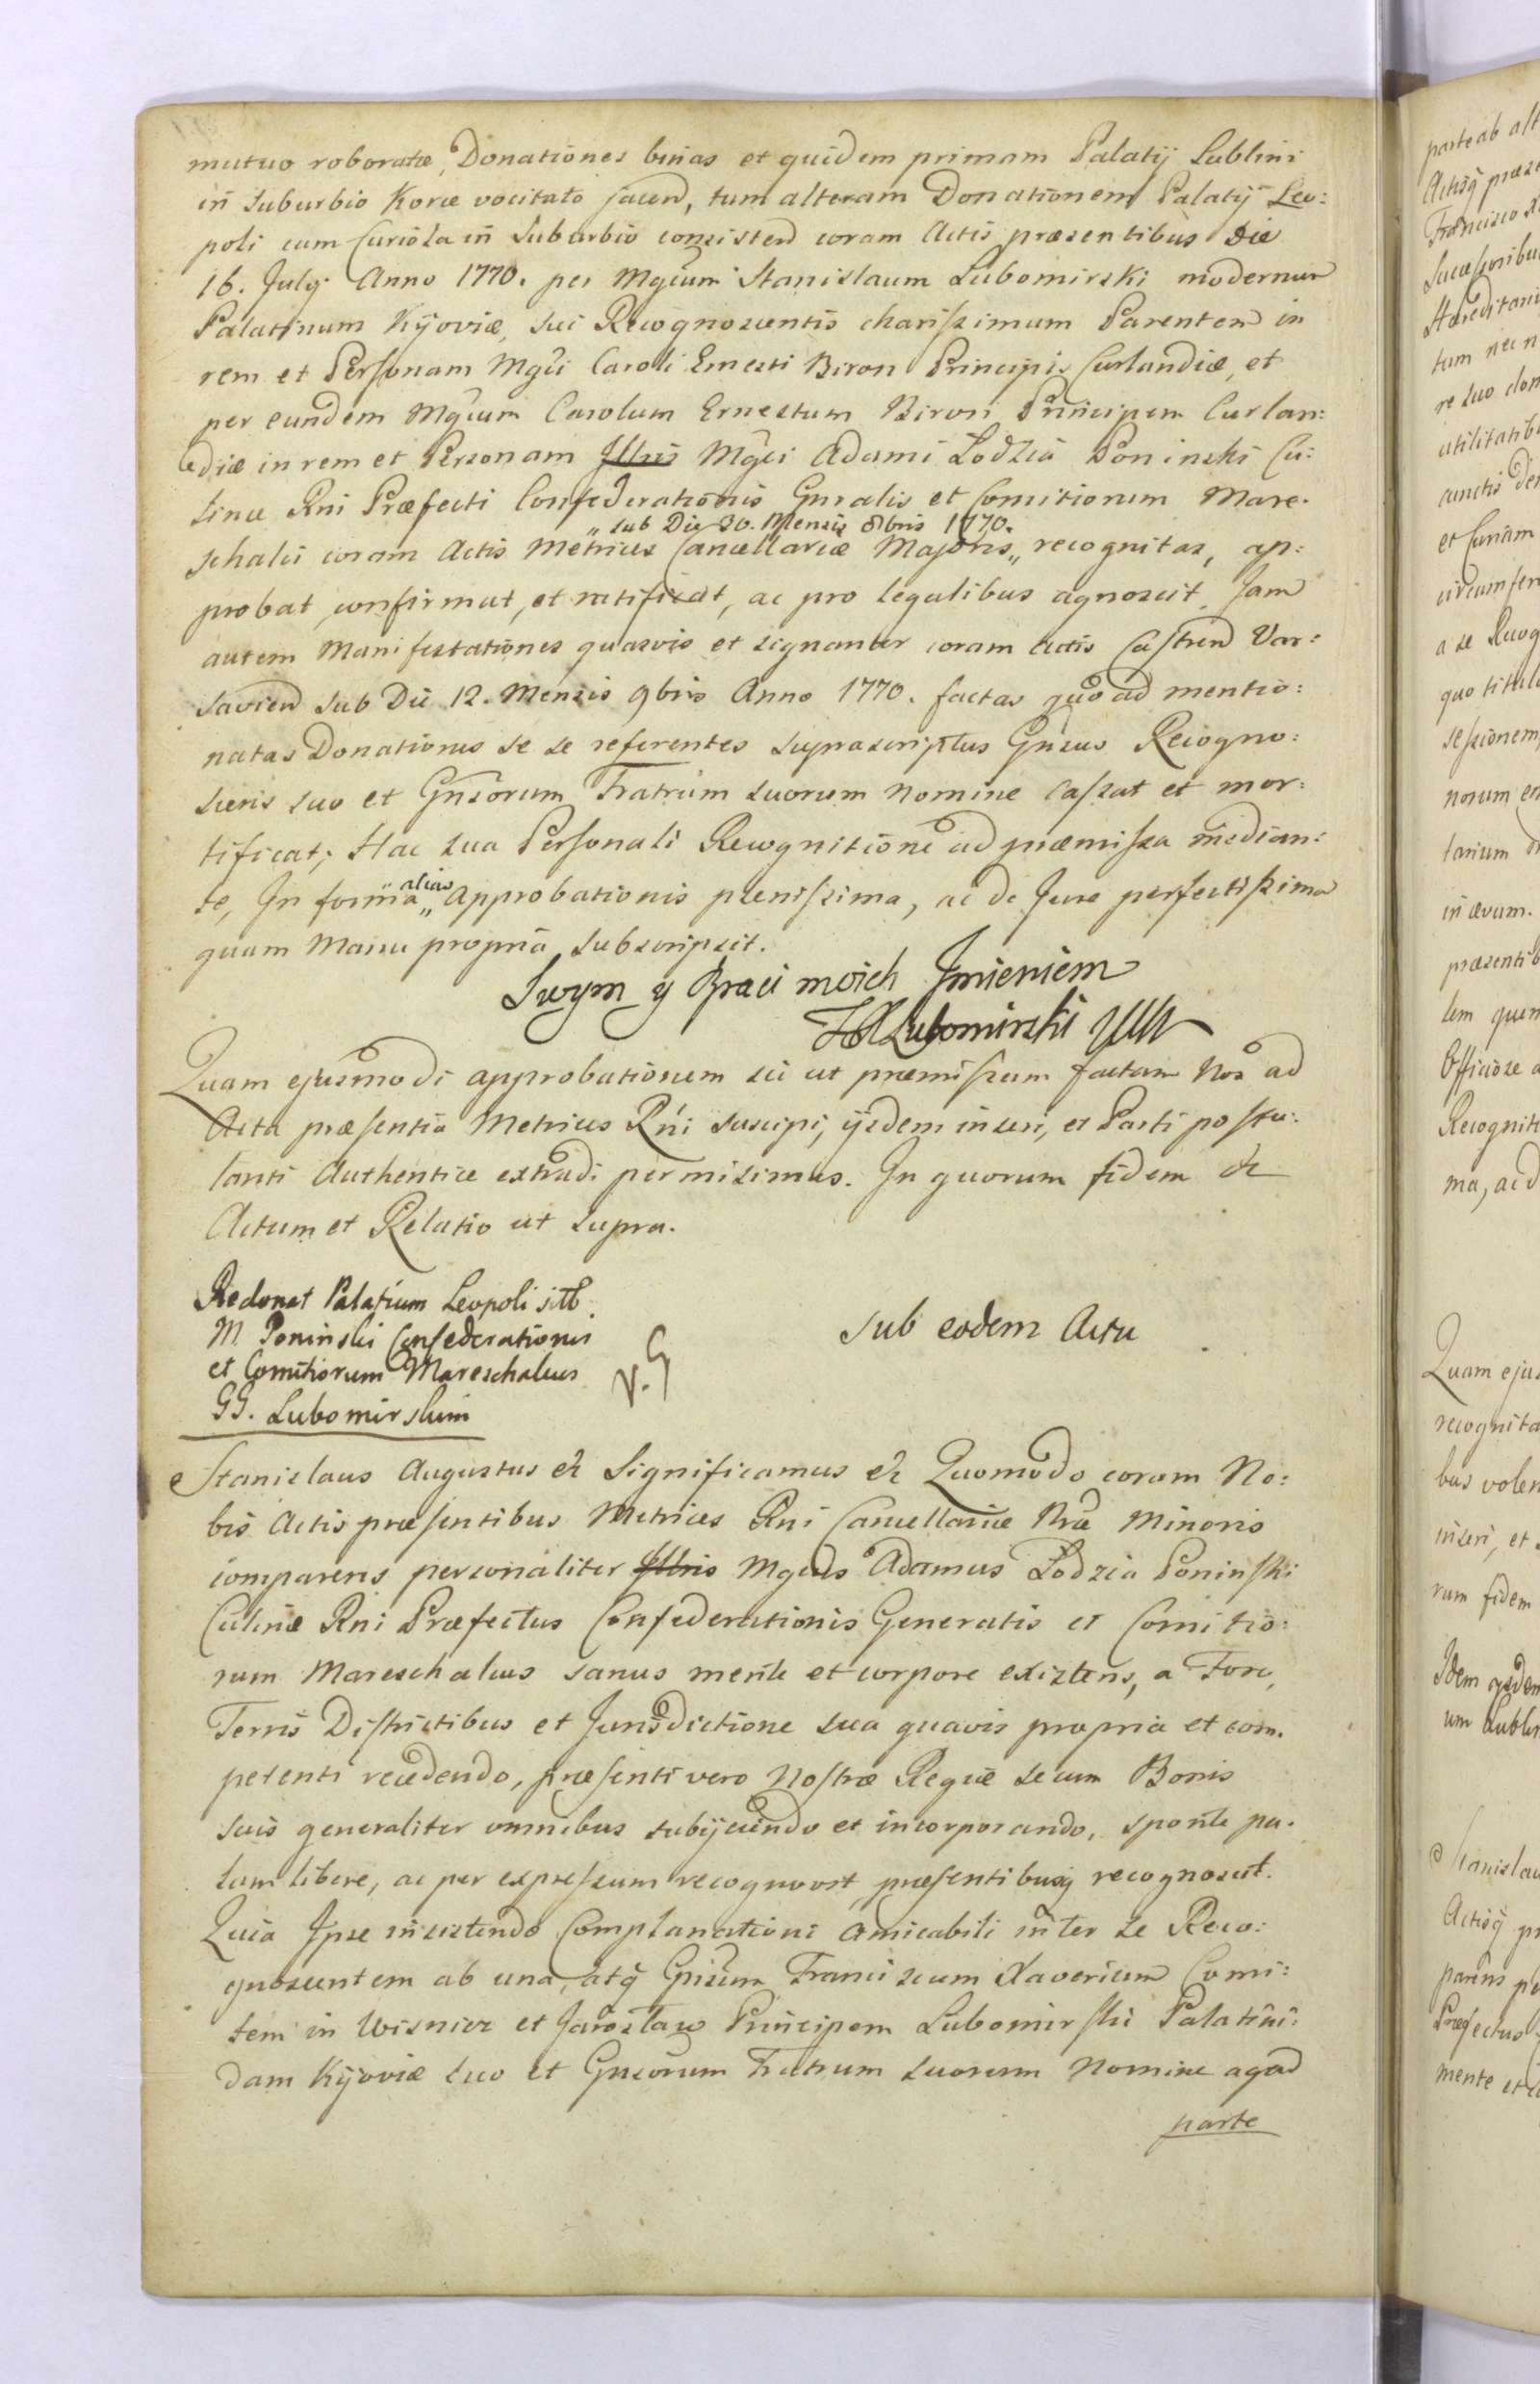 mutuo roboratæ, Donationes binas et quidem primam Palatij Lublini
in Suburbio Korce vocitato jacend, tum alteram Donationem Palatij Leo:
poli cum Curiola in Suburbio consistend coram Actis præsentibus Die
16. July Anno 1770. per Mgcum Stanislaum Lubomirski modernum
Palatinum Kijoviæ, sui Recognoscentis charissimum Parentem in
rem et Personam Mgci Caroli Ernesti Biron Principis Curlandiæ, et
per eundem Mgcum Carolum Ernestum Biron Principem Curlan:
diæ in rem et Personam Illris Mgci Adami Łodzia Poninski Cu:
linæ Rni Præfecti Confederationis Gnralis et Comitiorum Mare:
„ sub Die 30. Mensis 8bris 1770.
schalci coram Actis Metrices Cancellariæ Majoris „ recognitas, ap:
probat, confirmat, et ratificat, ac pro legalibus agnoscit. Jam
autem Manifestationes quasvis et signanter coram Actis Castren Var:
savien sub Die 12. Mensis 9bris Anno 1770. factas quo ad mentio:
natas Donationes se se referentes suprascriptus Gnsus Recogno:
scens suo et Gnsorum Fratrum suorum Nomine cassat et mor:
tificat; Hac sua Personali Recognitione ad præmissa median:
alias
te, In forma „ Approbationis plenissima, ac de Jure perfectissima
quam Manu propria subscripsit.
Swym y Braci moich Jmieniem
Lubomirski
Quam ejusmodi approbationem sic ut præmissum factam Nos ad
Acta præsentia Metrices Rni suscipi, ijsdem inseri, et Parti postu:
lanti Authentice extradi permisimus. In quorum fidem &
Actum et Relatio ut supra.
Redonat Palatium Leopoli sitt
M. Poninski Confederationis
et Comitiorum Mareschalcus
GG. Lubomirskim
V. G
Sub eodem Actu
Stanislaus Augustus & Significamus & Quomodo coram No:
bis Actis præsentibus Metrices Rni Cancellariæ Nræ Minoris
comparens personaliter Illris Mgcus Adamus Łodzia Poninski
Culinæ Rni Præfectus Confederationis Generalis et Comitio:
rum Mareschalcus sanus mente et corpore existens, a Foro,
Terris Districtibus et Jurisdictione sua quavis propria et com:
petenti recedendo, præsenti vero Nostræ Regiæ se cum Bonis
suis generaliter omnibus subijciendo et incorporando, sponte pa:
lam libere, ac per expressum recognovit præsentibusq recognoscit.
Quia Ipse insistendo Complanationi Amicabili inter se Reco:
gnoscentem ab una, atq Gnsum Franciscum Xaverium Comi:
tem in Wisnicz et Jarosław Principem Lubomirski Palatini:
dam Kijoviæ suo et Gnsorum Fratrum suorum Nomine agend
parte
parte ab alt
Actisq præse
Francisco X
Successoribu
Hæreditari
tum nec n
re suo don
utilitatib
cunctis de
et Curiam
circumfer
a se Recog
quo titulo
sessionem,
norum
tarium
in ævum.
præsentib
lem quem
Officiose a
Recogniti
ma, ac d
Quam ejus
recognita
bus volen
inseri, et
rum fidem
Idem
um Lublin
Stanislau
Actisq pr
parens pe
Præfectus
mente et c